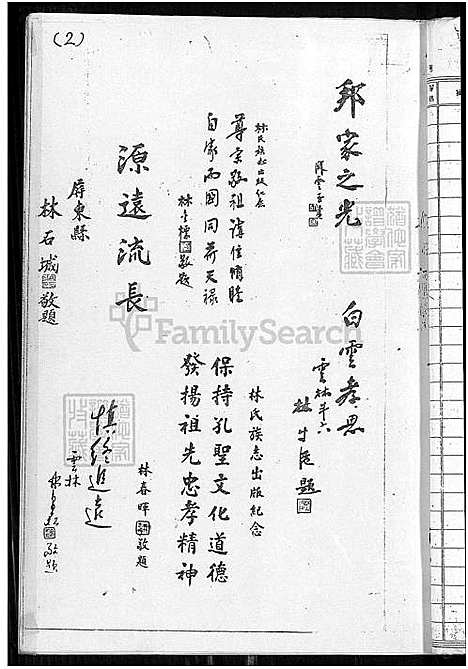 (2)
邦家之光
林氏族志出版紀念
尊宗敬祖講信修睦
自家而國同荷天祿
敬題
源遠流長
屏東縣
林石城敬題
白雲孝思
雲林斗六
題
林氏族志出版紀念
保持孔聖文化道德
發揚祖先忠孝精神
林春暉敬題
慎終追遠
雲林
敬題
FamilySearch